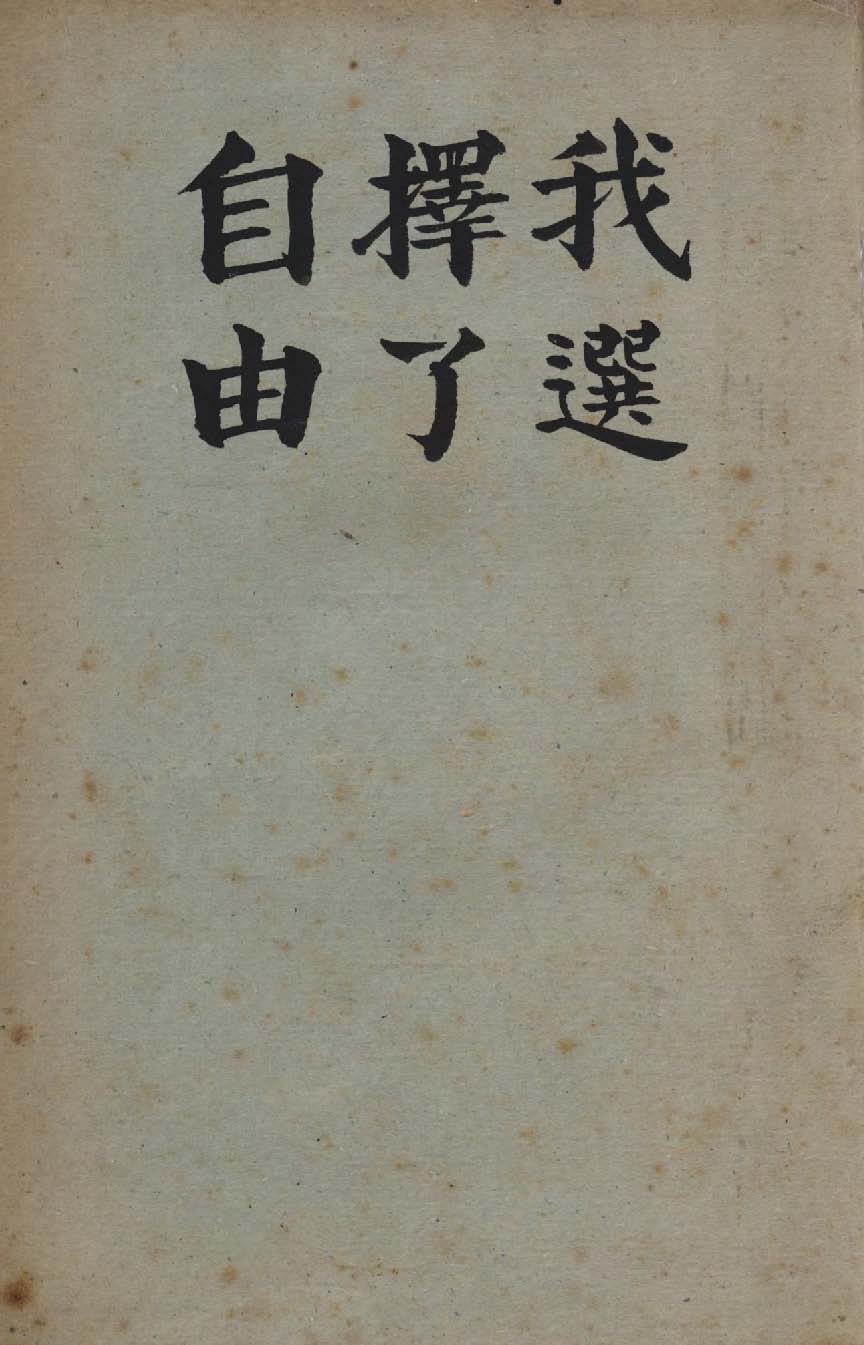 我選
擇了
自由